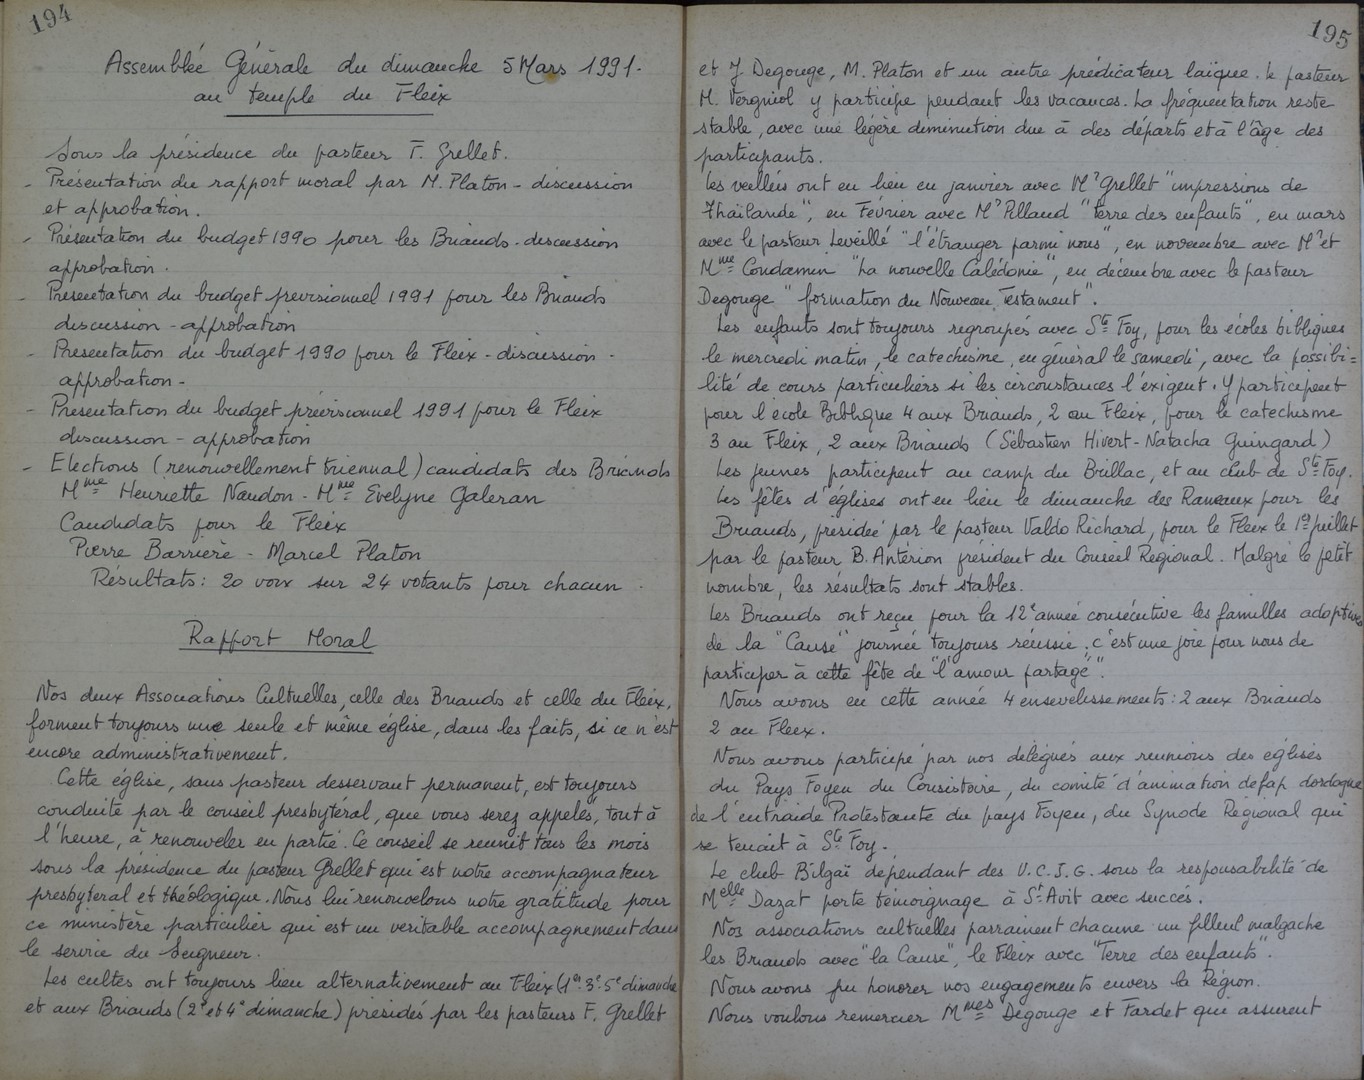 194
Assemblée Générale du dimanche 5 Mars 1991.
au temple du Fleix
Sous la présidence du pasteur F. Grellet.
- Présentation du rapport moral par M. Platon - discussion
et approbation.
- Présentation du budget 1990 pour les Briands - discussion
approbation.
- Présentation du budget previsionnel 1991 pour les Briands
discussion - approbation
- Presentation du budget 1990 pour le Fleix - discussion -
approbation -
- Presentation du budget prévisionnel 1991 pour le Fleix
discussion - approbation
- Elections (renouvellement triennal) candidats des Briands
Mme Henriette Naudon - Mme Evelyne Galeran
Candidats pour le Fleix
Pierre Barrière - Marcel Platon
Résultats : 20 voix sur 24 votants pour chacun.
Rapport Moral
Nos deux Associations Cultuelles, celle des Briands et celle du Fleix,
forment toujours une seule et même église, dans les faits, si ce n'est
encore administrativement.
Cette église, sans pasteur desservant permanent, est toujours
conduite par le conseil presbytéral, que vous serez appelés, tout à
l'heure, à renouveler en partie. Ce conseil se reunit tous les mois
sous la présidence du pasteur Grellet qui est notre accompagnateur
presbyteral et théologique. Nous lui renouvelons notre gratitude pour
ce ministère particulier qui est un veritable accompagnement dans
le service du Seigneur.
Les cultes ont toujours lieu alternativement au Fleix (1er. 3e. 5e dimanche
et aux Briands (2e et 4e dimanche) présidés par les pasteurs F. Grellet
195
et J. Degouge, M. Platon et un autre prédicateur laïque. le pasteur
M. Vergniol y participe pendant les vacances. La fréquentation reste
stable, avec une légère diminution due à des départs et à l'âge des
participants.
Les veillées ont eu lieu en janvier avec Mr Grellet "impressions de
Thaïlande", en Février avec Mr Pellaud "terre des enfants", en mars
avec le pasteur Leveillé "l'étranger parmi nous", en novembre avec Mr et
Mme Condamin "La nouvelle Calédonie", en décembre avec le pasteur
Degouge "formation du Nouveau Testament".
Les enfants sont toujours regroupés avec Ste Foy, pour les écoles bibliques
le mercredi matin, le catechisme, en général le samedi, avec la possibi=
lité de cours particuliers si les circonstances l'exigent. Y participent
pour l'école Biblique 4 aux Briands, 2 au Fleix, pour le catechisme
3 au Fleix, 2 aux Briands (Sébastien Hivert - Natacha Guingard)
Les jeunes participent au camp du Brillac, et au club de Ste Foy.
Les fêtes d'églises ont eu lieu le dimanche des Rameaux pour les
Briands, présidée par le pasteur Valdo Richard, pour le Fleix le 1er juillet
par le pasteur B. Antérion président du Conseil Regional. Malgré le petit
nombre, les résultats sont stables.
Les Briands ont reçu pour la 12e année consécutive les familles adoptives
de la "Cause" journée toujours réussie ; c'est une joie pour nous de
participer à cette fête de "l'amour partagé".
Nous avons eu cette année 4 ensevelissements : 2 aux Briands
2 au Fleix.
Nous avons participé par nos délégués aux reunions des églises
du Pays Foyen du Consistoire, du comité d'animation defap dordogne
de l'entraide Protestante du pays Foyen, du Synode Régional qui
se tenait à Ste Foy.
Le club Bilgaï dépendant des U.C.J.G. sous la responsabilité de
Melle Dazat porte témoignage à St Avit avec succès.
Nos associations cultuelles parrainent chacune un filleul malgache
les Briands avec "la Cause", le Fleix avec "Terre des enfants".
Nous avons pu honorer nos engagements envers la Région.
Nous voulons remercier Mmes Degouge et Fardet qui assurent